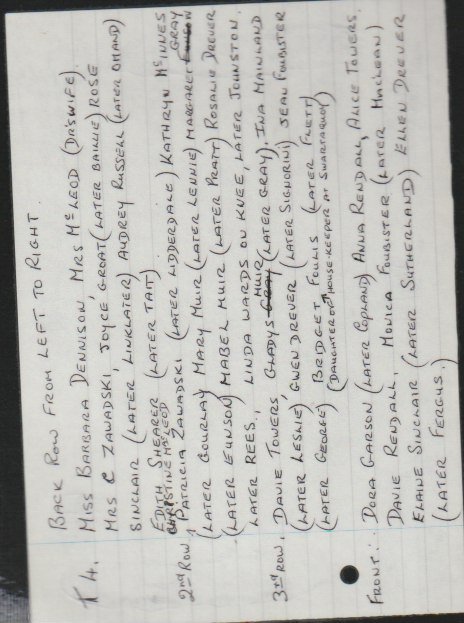 T4.
BACK ROW FROM LEFT TO RIGHT
MISS BARBARA DENNISON, MRS McLEOD (DR'S WIFE).
MRS C ZAWADSKI, JOYCE GROAT (LATER BAILLIE) ROSE
SINCLAIR (LATER LINKLATER) AUDREY RUSSELL (LATER OMAND)
EDITH SHEARER (LATER TAIT)
CHRISTINE McLEOD
2nd ROW, PATRICIA ZAWADSKI (LATER LIDDERDALE) KATHRYN McINNES
(LATER GOURLAY MARY MUIR (LATER LENNIE) MARGARET GRAY
(LATER EUNSON) MABEL MUIR (LATER PRATT) ROSALIE DREVER
LATER REES., LINDA WARDS OU KNEE, LATER JOHNSTON.
3rd ROW. DAVIE TOWERS, GLADYS MUIR (LATER GRAY), INA MAINLAND
(LATER LESLIE) GWEN DREVER (LATER SIGNORINI) JEAN FOUBISTER
(LATER GEORGE) BRIDGET FOULIS (LATER FLETT)
(DAUGHTER OF HOUSE-KEEPER AT SWARTAQUOY)
FRONT:- DORA GARSON (LATER COPLAND) ANNA RENDALL, ALICE TOWERS.
DAVIE RENDALL, MONICA FOUBISTER (LATER MACLEAN)
ELAINE SINCLAIR (LATER SUTHERLAND) ELLEN DREVER
(LATER FERGUS.)